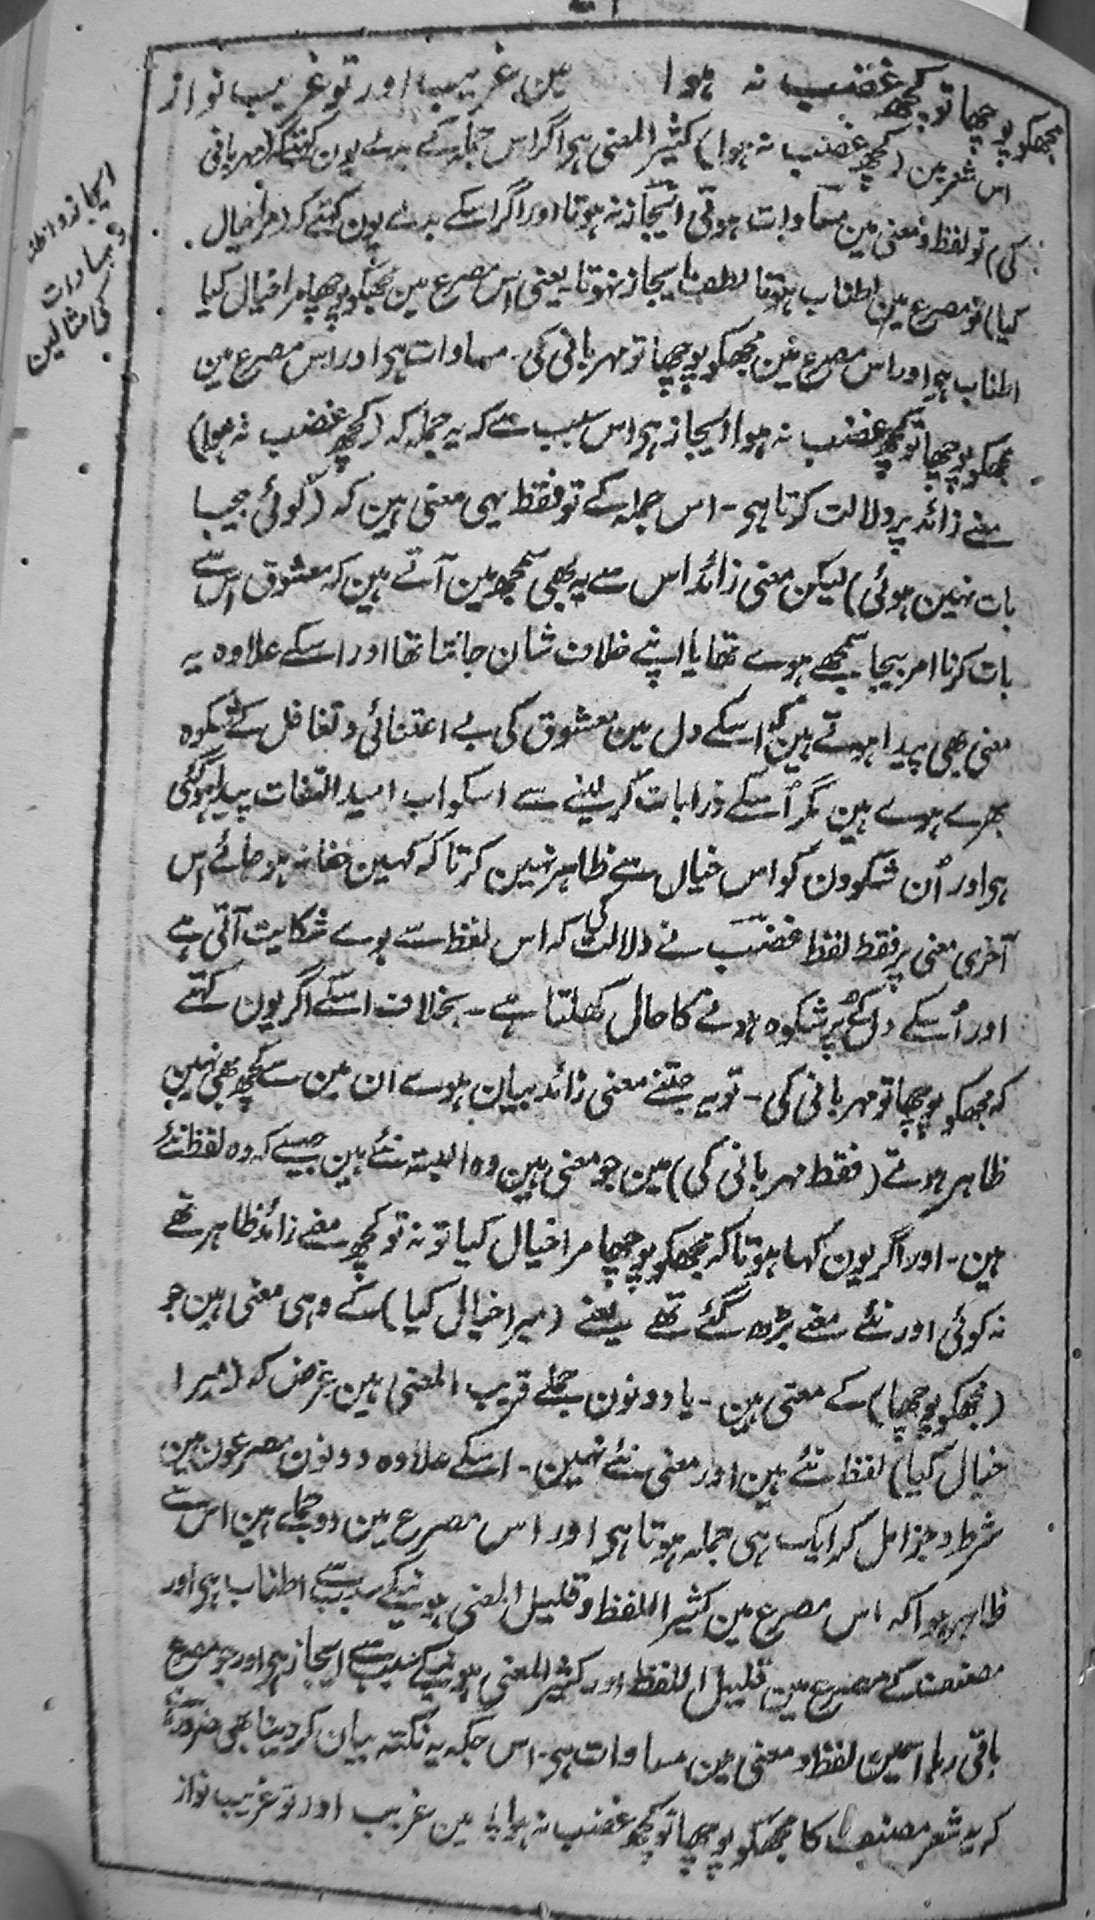 مجھکو پوچھا تو کچھ غضب نہ ہوا مین غریب اور تو غریب نواز
اس شعر مین (کچھ غضب نہ ہوا) کثیر المعنی ہی اگر اس جملہ کے بدلے یون کہتے کہ (مہربانی
کی) تو لفظ و معنی مین مساوات ہوتی ایجاز نہ ہوتا اور اگر اسکے بدلے یون کہتے کہ (مرا خیال
کیا) تو مصرع مین اطناب ہوتا لطف ایجاز نہوتا یعنی اس مصرع مین مجھکو پوچھا مرا خیال کیا
اطناب ہی اور اس مصرع مین مجھکو پوچھا تو مہربانی کی۔ مساوات ہی اور اس مصرع مین
مجھکو پوچھا تو کچھ غضب نہ ہوا ایجاز ہی اس سبب سے کہ یہ جملہ کہ (کچھ غضب نہ ہوا)
معنے زائد پر دلالت کرتا ہی۔ اس جملہ کے تو فقط یہی معنی ہین کہ (کوئی بیجا
بات نہین ہوئی) لیکن معنی زائد اس سے یہ بھی سمجھ مین آتے ہین کہ معشوق اس سے
بات کرنا امر بیجا سمجھے ہوے تھا یا اپنے خلاف شان جانتا تھا اور اسکے علاوہ یہ
معنی بھی پیدا ہوتے ہین کہ اسکے دل مین معشوق کی بے اعتنائی و تغافل کے شکوہ
بھرے ہوے ہین مگر اُسکے ذرا بات کر لینے سے اسکو اب امید التفات پیدا ہوگئی
ہی اور اُن شکوون کو اس خیال سے ظاہر نہین کرتا کہ کہین خفا نہ ہو جائے اس
آخری معنی پر فقط لفظ غضب نے دلالت کی کہ اس لفظ سے بوے شکایت آتی ہے
اور اُسکے دل کے پُر شکوہ ہونے کا حال کھلتا ہے۔ بخلاف اسکے اگر یون کہتے
کہ مجھکو پوچھا تو مہربانی کی۔ تو یہ جتنے معنی زائد بیان ہوے ان مین سے کچھ بھی نہین
ظاہر ہوتے (فقط مہربانی کی) مین جو معنی ہین وہ البتہ نئے ہین جیسے کہ وہ لفظ نئے
ہین۔ اور اگر یون کہا ہوتا کہ مجھکو پوچھا مرا خیال کیا تو نہ تو کچھ معنے زائد ظاہر تھے
نہ کوئی اور نئے معنے بڑھ گئے تھے یعنے (میرا خیال کیا) کے وہی معنی ہین جو
(مجھکو پوچھا) کے معنی ہین۔ یا دونون جملے قریب المعنی ہین غرض کہ (میرا
خیال کیا) لفظ نئے ہین اور معنی نئے نہین۔ اسکے علاوہ دونون مصرعون مین
شرط و جزا مل کر ایک ہی جملہ ہوتا ہی اور اس مصرع مین دو جملے ہین اس سے
ظاہر ہوا کہ اس مصرع مین کثیر اللفظ و قلیل المعنی ہونیکے سبب سے اطناب ہی اور
مصنف کے مصرع مین قلیل اللفظ اور کثیر المعنی ہونیکے سبب سے ایجاز ہی اور جو مصرع
باقی رہا اسمین لفظ و معنی مین مساوات ہی۔ اس جگہ یہ نکتہ بیان کر دینا بھی ضرور ہی
کہ یہ شعر مصنف کا مجھکو پوچھا تو کچھ غضب نہ ہوا مین غریب اور تو غریب نواز
ایجاز و اطناب
و مساوات
کی مثالین